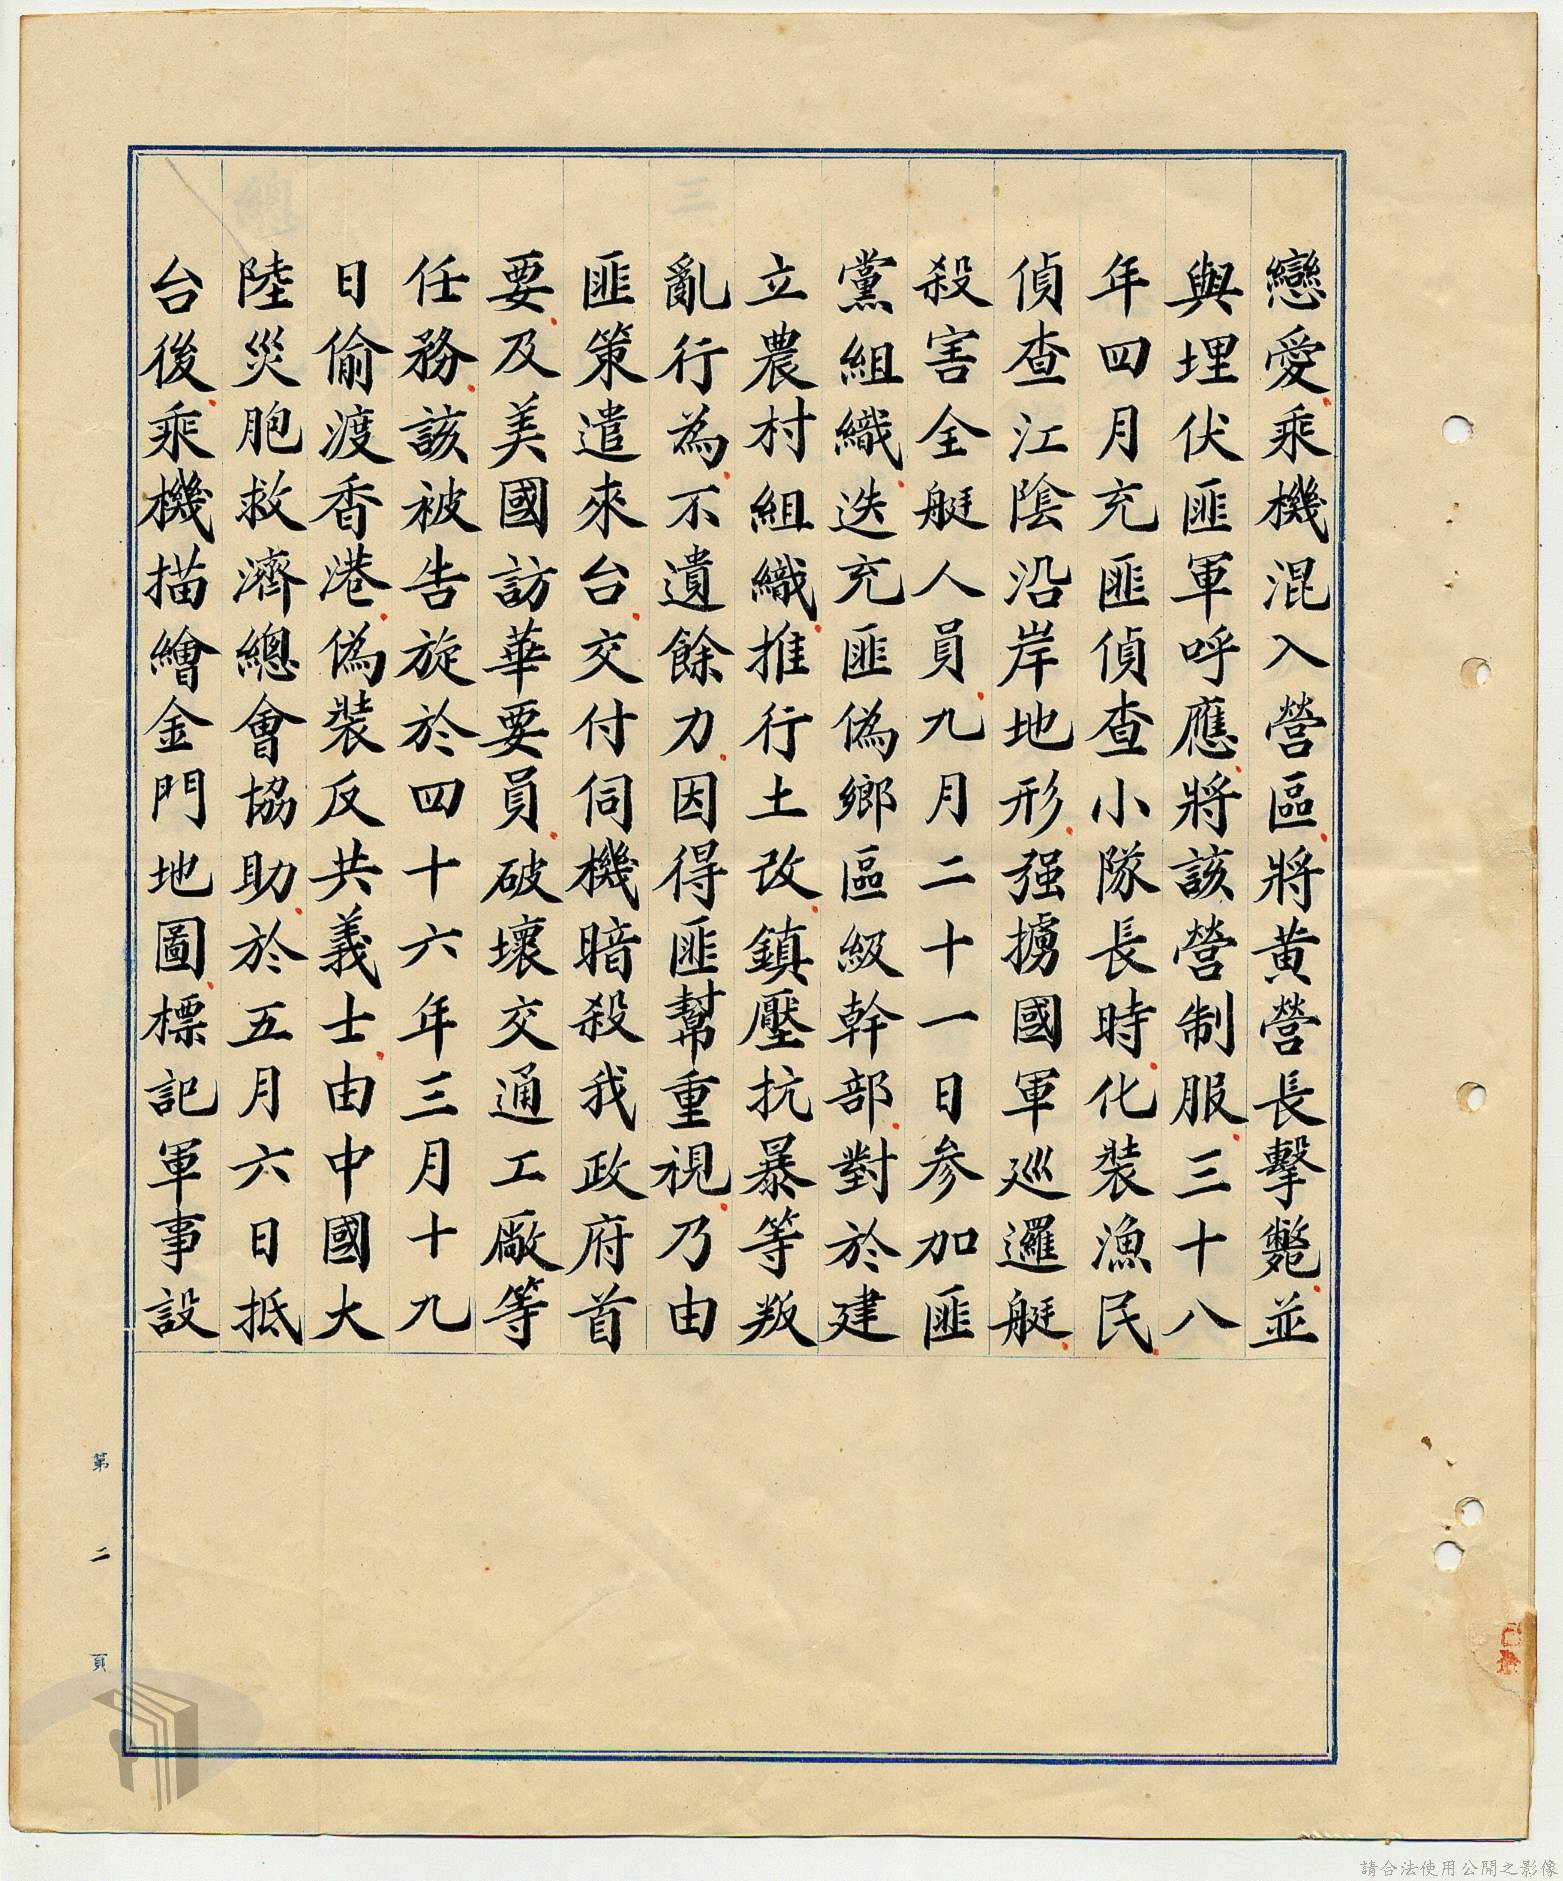 戀愛乘機混入營區將黃營長擊斃並
與埋伏匪軍呼應將該營制服三十八
年四月充匪偵查小隊長時化裝漁民
偵查江陰沿岸地形强擄國軍巡邏艇
殺害全艇人員九月二十一日參加匪
黨組織迭充匪偽鄉區級幹部對於建
立農村組織推行土改鎮壓抗暴等叛
亂行為不遺餘力因得匪幫重視乃由
匪策遣來台交付伺機暗殺我政府首
要及美國訪華要員破壞交通工廠等
任務該被告旋於四十六年三月十九
日偷渡香港偽裝反共義士由中國大
陸災胞救濟總會協助於五月六日抵
台後乘機描繪金門地圖標記軍事設
第二頁
請合法使用公開之影像